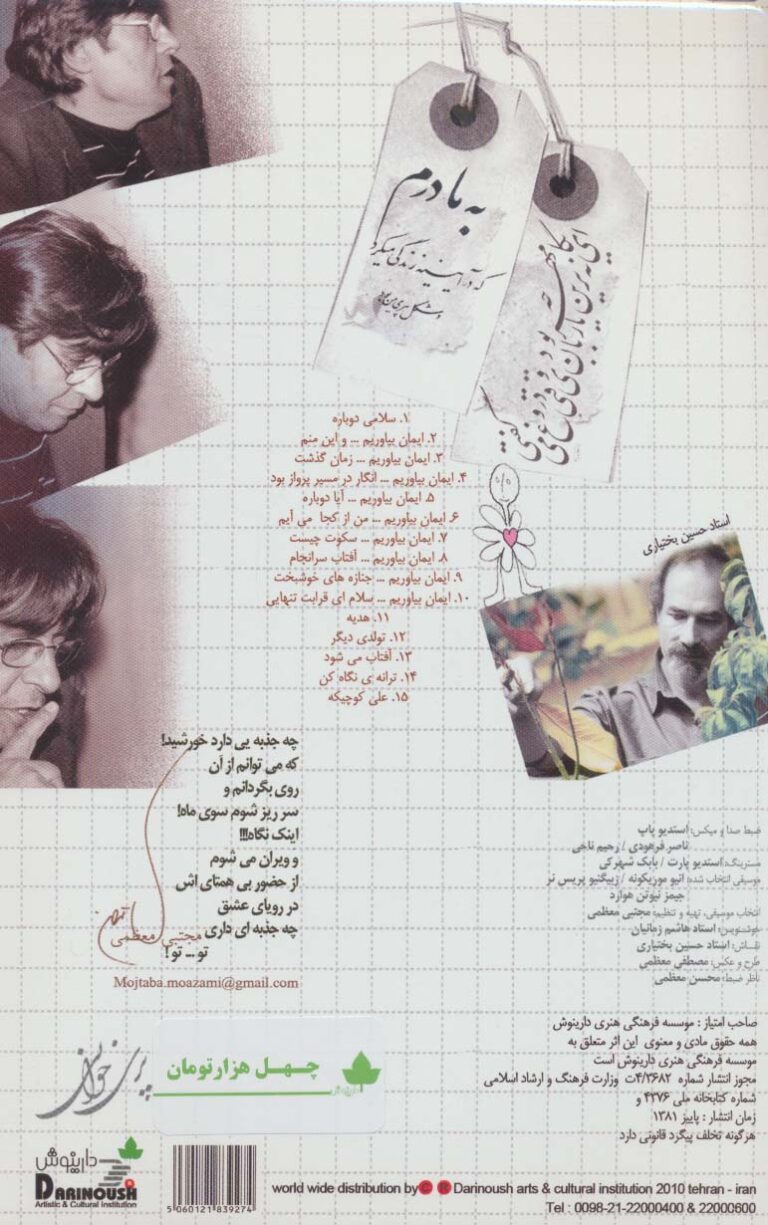 به مادرم
که در آینه زندگی میکرد
و شکل پیری من بود
ای یگانه ترین یار
۱. سلامی دوباره
۲. ایمان بیاوریم ... و این منم
۳. ایمان بیاوریم ... زمان گذشت
۴. ایمان بیاوریم ... انگار در مسیر پرواز بود
۵. ایمان بیاوریم ... آیا دوباره
۶. ایمان بیاوریم ... من از کجا می آیم
۷. ایمان بیاوریم ... سکوت چیست
۸. ایمان بیاوریم ... آفتاب سرانجام
۹. ایمان بیاوریم ... جنازه های خوشبخت
۱۰. ایمان بیاوریم ... سلام ای قرابت تنهایی
۱۱. هدیه
۱۲. تولدی دیگر
۱۳. آفتاب می شود
۱۴. ترانه ی نگاه کن
۱۵. علی کوچیکه
استاد حسین بختیاری
چه جذبه یی دارد خورشید!
که می توانم از آن
روی بگردانم و
سر ریز شوم سوی ماه!
اینک نگاه!!!
و ویران می شوم
از حضور بی همتای اش
در رویای عشق
چه جذبه ای داری
تو... تو!
مجتبی معظمی
Mojtaba.moazami@gmail.com
ضبط صدا و میکس: استدیو پاپ
ناصر فرهودی / رحیم ناجی
مسترینگ: استدیو پارت / بابک شهرکی
موسیقی انتخاب شده: انیو موریکونه / زبیگنیو پریس نر
جیمز نیوتن هوارد
انتخاب موسیقی، تهیه و تنظیم: مجتبی معظمی
خوشنویس: استاد هاشم زمانیان
نقاش: استاد حسین بختیاری
طرح و عکس: مصطفی معظمی
ناظر ضبط: محسن معظمی
صاحب امتیاز : موسسه فرهنگی هنری دارینوش
همه حقوق مادی و معنوی این اثر متعلق به
موسسه فرهنگی هنری دارینوش است
مجوز انتشار شماره ۴/۳۶۸۲ت وزارت فرهنگ و ارشاد اسلامی
شماره کتابخانه ملی ۴۳۷۶ و
زمان انتشار : پاییز ۱۳۸۱
هرگونه تخلف پیگرد قانونی دارد
چهل هزارتومان
پری خوانی
دارینوش
DARINOUSH
Artistic & Cultural Institution
5 060121 839274
world wide distribution by © ® Darinoush arts & cultural institution 2010 tehran - iran
Tel : 0098-21-22000400 & 22000600